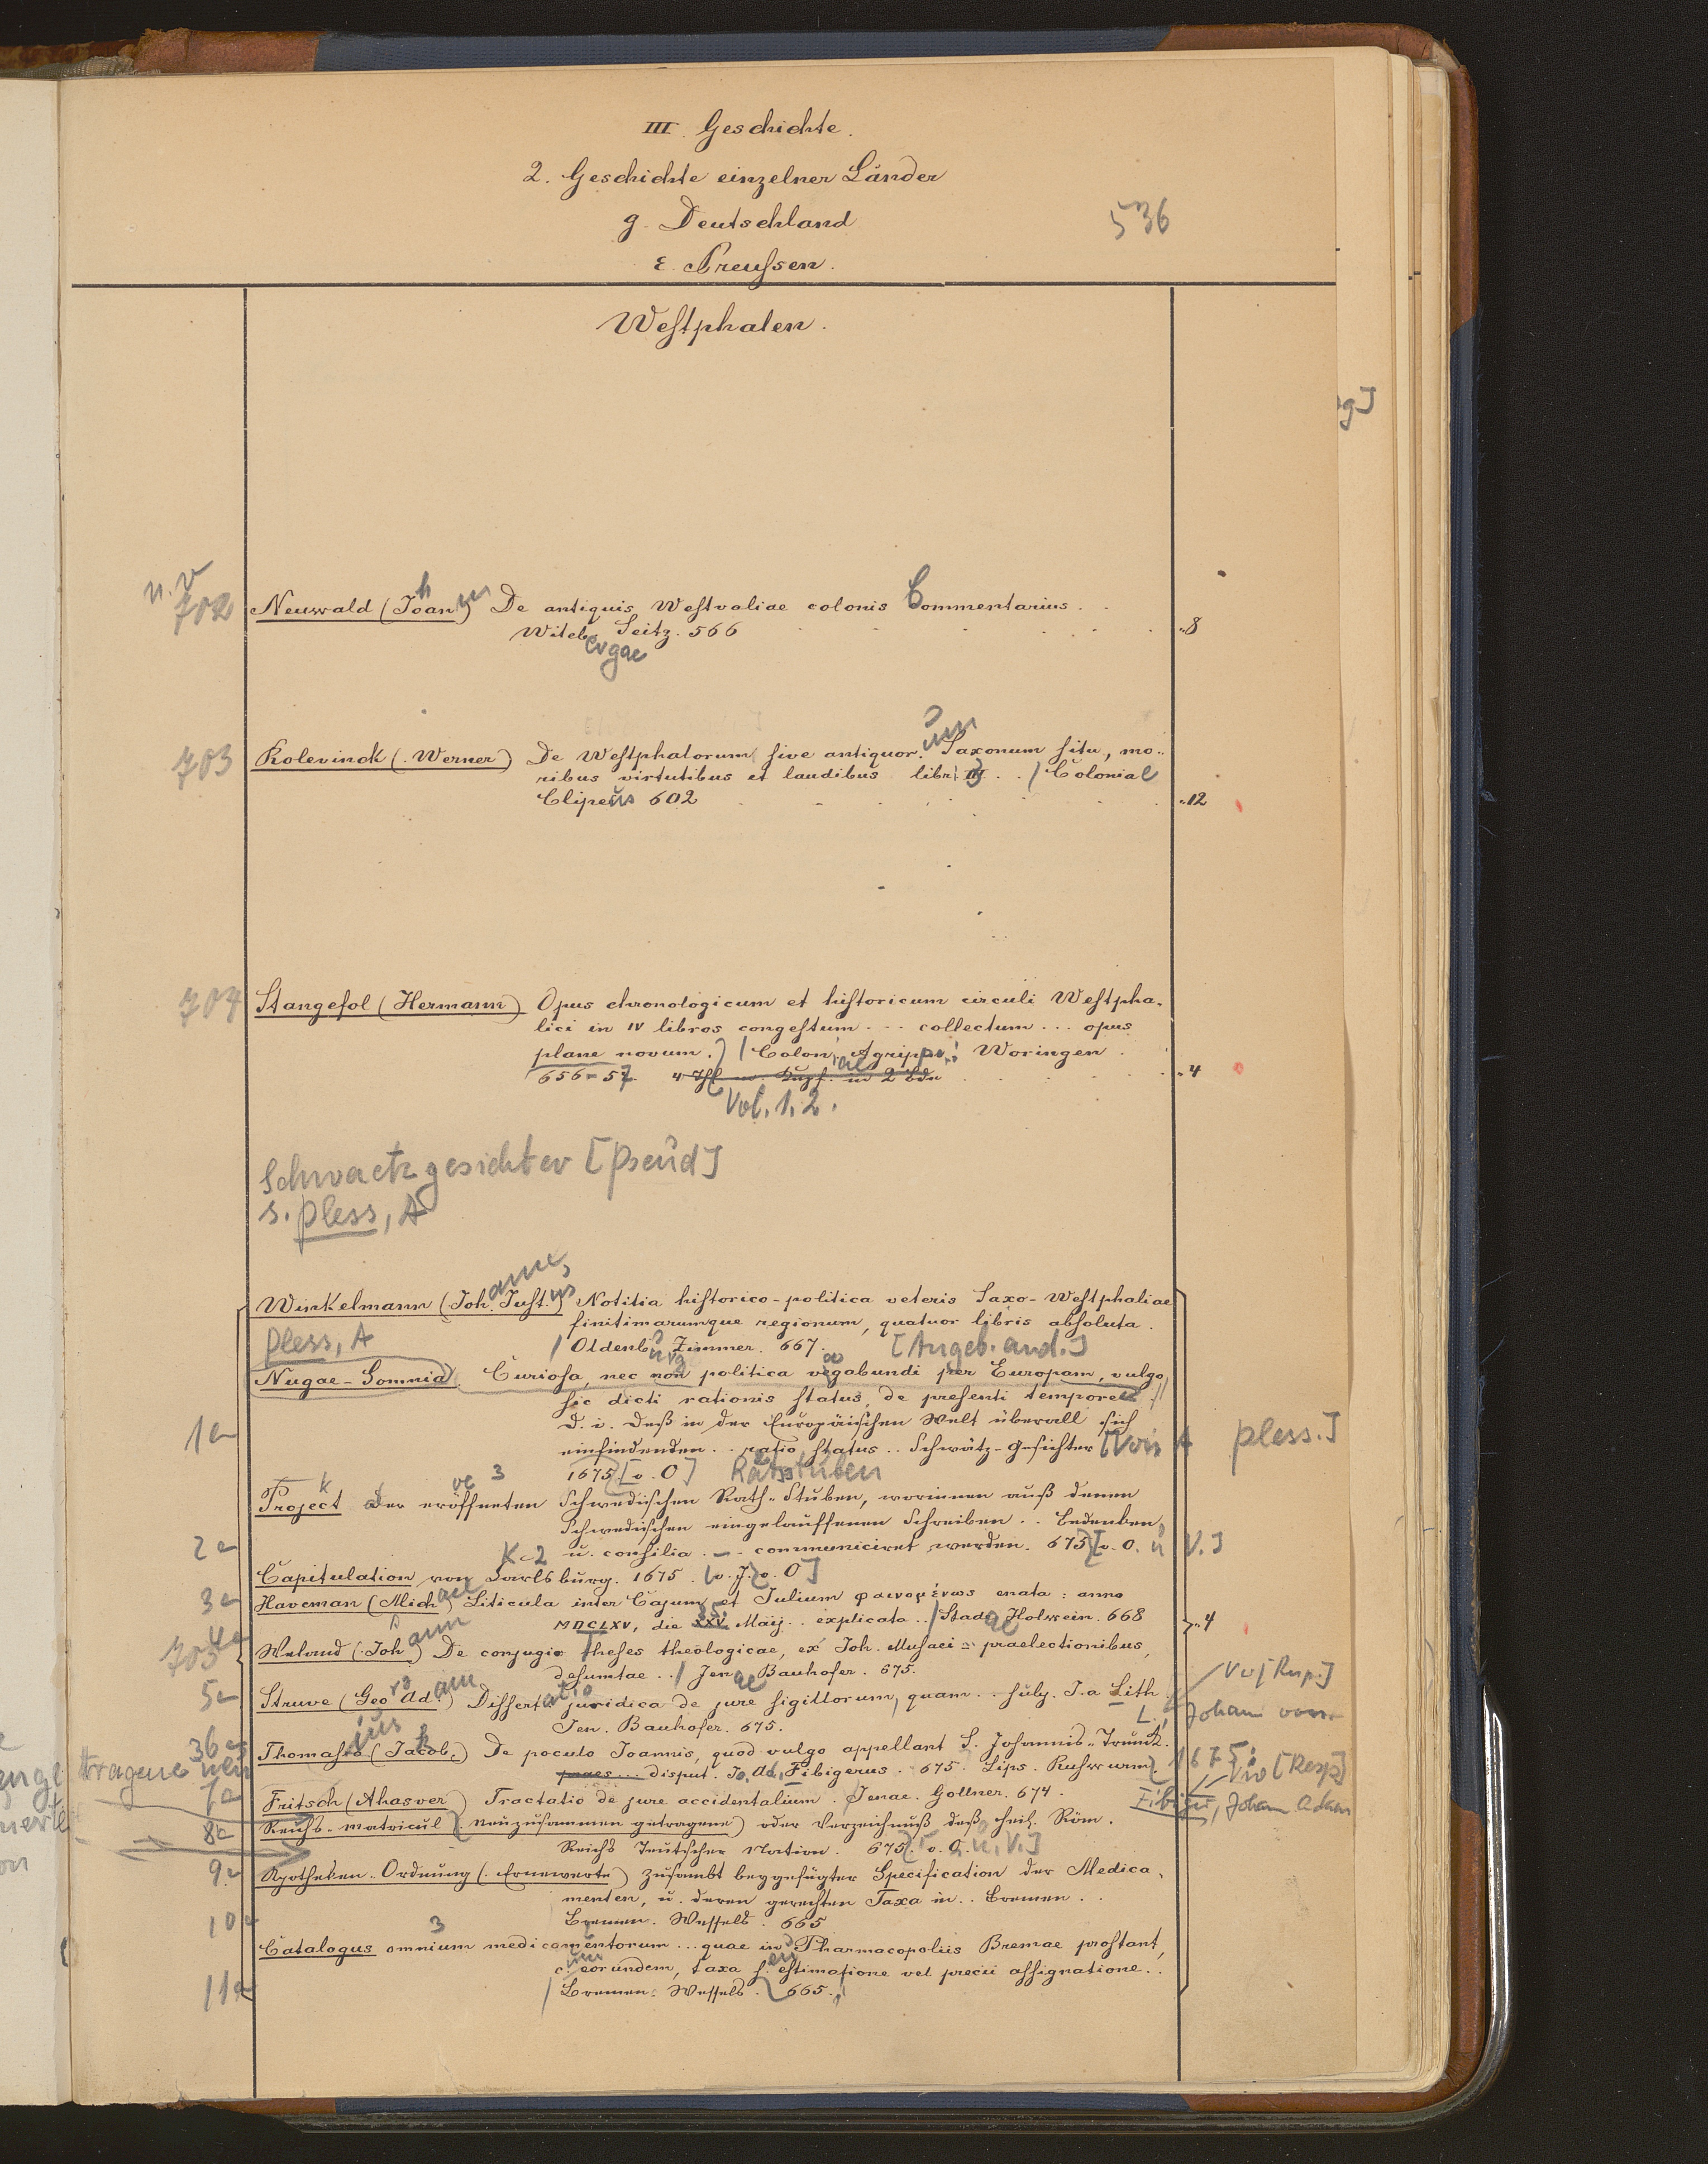 III. Geschichte.
2. Geschichte einzelner Länder
g. Deutschland
536
ε. Preußen.
Westphalen.
g]
n. v
702 Neuwald (Johann) De antiquis Westvaliae colonis Commentarius . .
Witebergae Seitz. 566 „8
703 Rolevinck (Werner) De Westphalorum sive antiquor. Saxonum situ, mo„
ribus virtutibus et laudibus libri III . . / Coloniae
Clipeus 602 „12
704 Stangefol (Hermann) Opus chronologicum et historicum circuli Westpha„
lici in IV libros congestum ... collectum ... opus
plane novum. / Colon. Agripp. Woringen.
656-57. 4 Thl m. Kupf. in 2 Bdn „4
Vol. 1. 2.
Schwaetzgesichter [Pseud]
s. Pless, A
Winkelmann (Joh. Just.) Notitia historico-politica veteris Saxo-Westphaliae
finitimarumque regionum, quatuor libris absoluta.
Pless, A / Oldenb. Zimmer. 667. [Angeb. and.]
Nugae-Somnia Curiosa, nec non politica vagabundi per Europam, vulgo
sic dicti rationis status, de presenti tempore
1a d. i. Deß in der Europäischen Welt überall sich
einfindenden . . ratio status . . Schwätz-Gesichter [Von A Pless.]
1675 [o. O] Ratstuben
Project der eröffneten Schwedischen Rath-Stuben, worinnen auß denen
Schwedischen eingelauffenen Schreiben . . Bedenken,
2a u. consilia . . communiciret werden. 675 [o. O. u V.]
Capitulation von Carlsburg. 1675. (o. J. o. O]
3a Haveman (Mich) Liticula inter Cajum et Julium φαινομένως enata : anno
MDCLXV, die XXV Maij . . explicata . . / Stadae Holwein. 668 „4
4a
705 (Joh) De conjugio theses theologicae, ex Joh. Musaei praelectionibus
desumtae . . / Jenae Bauhofer. 675.
5a Struve (Geo. Ad.) Dissertatio juridica de jure sigillorum, quam . . subj. J. a Lith
Jen. Bauhofer. 675. L., Johann von
Thomasius (Jacob.) De poculo Joannis, quod vulgo appellant S. Johannis-Trunck.
praes... disput. Jo. Ad. Fibigerus. 675. Lips. 1675 [Resp]
7a Fritsch (Ahasver) Tractatio de jure accidentalium. Jenae. Gollner. 674. Fibiger, Johann Adam
8a Reichs-Matricul (neuzusammen getragene) oder Verzeichnuß deß heil. Röm.
Reichs Teutscher Nation. 675. [o. O. u. V.]
9a Apotheken-Ordnung (Ernewerte) zusambt beygefügter Specification der Medica„
menten, u. deren gerechten Taxa in . . Bremen . .
10a Bremen. Wessels. 665
Catalogus omnium medicamentorum ... quae in Pharmacopoliis Bremae prostant,
c. eorundem, taxa s. estimatione vel precii assignatione . .
11a / Bremen. Wessels. 665.